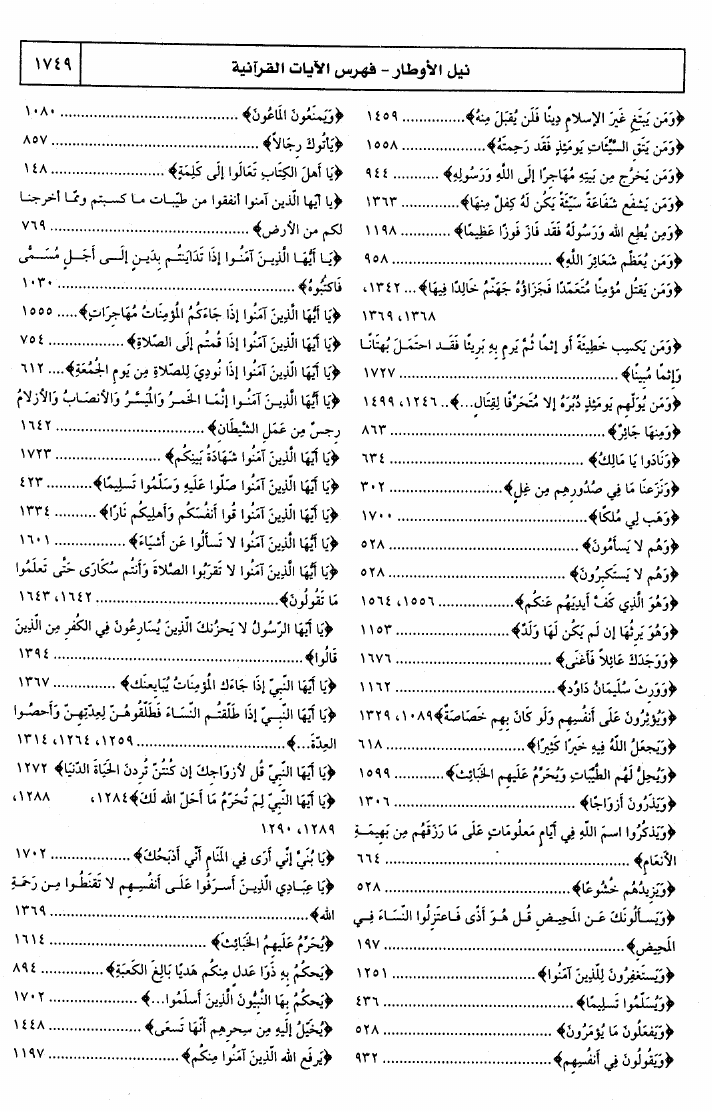 نيل الأوطار - فهرس الآيات القرآنية
١٧٤٩
﴿وَمَن يَبْتَغِ غَيرَ الإسلامِ دِينًا فَلَن يُقبَلَ مِنهُ﴾............... ١٤٥٩
﴿وَمَن يَتَقِ السَّيِّئَاتِ يَومَئِذٍ فَقَد رَحِمتَهُ﴾............... ١٥٥٨
﴿وَمَن يَخْرُج مِن بَيتِهِ مُهَاجِرًا إلَى اللَّهِ وَرَسُولِهِ﴾.......... ٩٤٤
﴿وَمَن يَشْفَع شَفَاعَةً سَيِّئَةً يَكُن لَهُ كِفلٌ مِنهَا﴾............ ١٣٦٣
﴿وَمِن يُطِعِ الله وَرَسُولَهُ فَقَد فَازَ فَوزًا عَظِيمًا﴾............ ١١٩٨
﴿وَمَن يُعَظِّم شَعَائِرَ اللَّهِ﴾............................. ٩٥٨
﴿وَمَن يَقْتُل مُؤمِنًا مُتَعَمِّدًا فَجَزَاؤُهُ جَهَنَّم خَالِدًا فِيهَا﴾... ١٣٤٢،
١٣٦٨، ١٣٦٩
﴿وَمَن يَكسِب خَطِيئَةً أو إثمًا ثُمَّ يَرمِ بِهِ بَرِيئًا فَقَد احتَمَلَ بُهتَانًا
وَإثمًا مُبِينًا﴾................................. ١٧٢٧
﴿وَمَن يُوَلِّهِم يَومَئِذٍ دُبُرَهُ إلا مُتَحَرِّفًا لِقِتَالٍ...﴾.. ١٢٤٦، ١٤٩٩
﴿وَمِنهَا جَائِرٌ﴾................................. ٨٦٣
﴿وَنَادَوا يَا مَالِكُ﴾............................. ٦٣٤
﴿وَنَزَعنَا مَا فِي صُدُورِهِم مِن غِلٍ﴾................ ٣٠٢
﴿وَهَب لِي مُلكًا﴾............................. ١٧٠٠
﴿وَهُم لا يَسأمُونَ﴾............................. ٥٢٨
﴿وَهُم لا يَستَكبِرُونَ﴾............................. ٥٢٨
﴿وَهُوَ الَّذِي كَفَّ أيدِيَهُم عَنكُم﴾............ ١٥٥٦، ١٥٦٤
﴿وَهُوَ يَرِثُهَا إن لَم يَكُن لَهَا وَلَدٌ﴾................ ١١٥٣
﴿وَوَجَدَكَ عَائِلاً فَأغنَى﴾....................... ١٦٧٦
﴿وَوَرِثَ سُلَيمَانُ دَاوُد﴾....................... ١١٦٢
﴿وَيُؤثِرُونَ عَلَى أنفُسِهِم وَلَو كَانَ بِهِم خَصَاصَةٌ﴾١٠٨٩، ١٣٢٩
﴿وَيَجعَلُ اللَّهُ فِيهِ خَيرًا كَثِيرًا﴾................... ٦١٨
﴿وَيُحِلُّ لَهُم الطَّيِّبَاتِ وَيُحَرِّمُ عَلَيهِم الخَبَائِثَ﴾....... ١٥٩٩
﴿وَيَذَرُونَ أزوَاجًا﴾............................. ١٣٠٦
﴿وَيَذكُرُوا اسمَ اللَّهِ فِي أيَّامٍ مَعلُومَاتٍ عَلَى مَا رَزَقَهُم مِن بَهِيمَةِ
الأنعَامِ﴾................................. ٦٦٤
﴿وَيَزِيدُهُم خُشُوعًا﴾............................. ٥٢٨
﴿وَيَسألُونَكَ عَنِ المَحِيضِ قُل هُوَ أذًى فَاعتَزِلُوا النِّسَاءَ فِي
المَحِيضِ﴾................................. ١٩٧
﴿وَيَستَغفِرُونَ لِلَّذِينَ آمَنُوا﴾....................... ١٢٥١
﴿وَيُسَلِّمُوا تَسلِيمًا﴾............................. ٤٣٦
﴿وَيَفعَلُونَ مَا يُؤمَرُونَ﴾....................... ٥٢٨
﴿وَيَقُولُونَ فِي أنفُسِهِم﴾....................... ٩٣٢
﴿وَيَمنَعُونَ المَاعُونَ﴾....................... ١٠٨٠
﴿يَأتُوكَ رِجَالاً﴾............................. ٨٥٧
﴿يَا أهلَ الكِتَابِ تَعَالَوا إلَى كَلِمَةٍ﴾................ ١٤٨
﴿يا أيّها الّذين آمنوا أنفقوا من طيّبات ما كسبتم وممّا أخرجنا
لكم من الأرض﴾............................. ٧٦٩
﴿يَا أيُّهَا الَّذِينَ آمَنُوا إذَا تَدَايَنتُم بِدَينٍ إلَى أجَلٍ مُسَمًّى
فَاكتُبُوهُ﴾................................. ١٠٣٠
﴿يَا أيُّهَا الَّذِينَ آمَنُوا إذَا جَاءَكُم المُؤمِنَاتُ مُهَاجِرَاتٍ﴾..... ١٥٥٥
﴿يَا أيُّهَا الَّذِينَ آمَنُوا إذَا قُمتُم إلَى الصَّلاةِ﴾............ ٧٥٤
﴿يَا أيُّهَا الَّذِينَ آمَنُوا إذَا نُودِيَ لِلصَّلاةِ مِن يَومِ الجُمُعَةِ﴾.... ٦١٢
﴿يَا أيُّهَا الَّذِينَ آمَنُوا إنَّمَا الخَمرُ وَالمَيسِرُ وَالأنصَابُ وَالأزلامُ
رِجسٌ مِن عَمَلِ الشَّيطَانِ﴾....................... ١٦٤٢
﴿يَا أيُّهَا الَّذِينَ آمَنُوا شَهَادَةُ بَينِكُم﴾................ ١٧٢٣
﴿يَا أيُّهَا الَّذِينَ آمَنُوا صَلُّوا عَلَيهِ وَسَلِّمُوا تَسلِيمًا﴾.......... ٤٢٣
﴿يَا أيُّهَا الَّذِينَ آمَنُوا قُوا أنفُسَكُم وَأهلِيكُم نَارًا﴾.......... ١٣٣٤
﴿يَا أيُّهَا الَّذِينَ آمَنُوا لا تَسألُوا عَن أشيَاءَ﴾............ ١٦٠١
﴿يَا أيُّهَا الَّذِينَ آمَنُوا لا تَقرَبُوا الصَّلاةَ وَأنتُم سُكَارَى حَتَّى تَعلَمُوا
مَا تَقُولُونَ﴾............................. ١٦٤٢، ١٦٤٣
﴿يَا أيُّهَا الرَّسُولُ لا يَحزُنكَ الَّذِينَ يُسَارِعُونَ فِي الكُفرِ مِن الَّذِينَ
قَالُوا﴾................................. ١٣٩٤
﴿يَا أيُّهَا النَّبِيّ إذَا جَاءَكَ المُؤمِنَاتُ يُبَايِعنَكَ﴾............ ١٣٦٧
﴿يَا أيُّهَا النَّبِيّ إذَا طَلَّقتُم النِّسَاءَ فَطَلِّقُوهُنَّ لِعِدَّتِهِنَّ وَأحصُوا
العِدّةَ...﴾....................... ١٢٥٩، ١٢٦٤، ١٣١٤
﴿يَا أيُّهَا النَّبِيّ قُل لأزوَاجِكَ إن كُنتُنَّ تُرِدنَ الحَيَاةَ الدّنيَا﴾ ١٢٧٢
﴿يَا أيُّهَا النَّبِيّ لِمَ تُحَرِّمُ مَا أحَلّ الله لَكَ﴾١٢٨٤، ١٢٨٨،
١٢٨٩، ١٢٩٠
﴿يَا بُنَيّ إنّي أرَى فِي المَنَامِ أنّي أذبَحُكَ﴾............ ١٧٠٢
﴿يَا عِبَادِي الَّذِينَ أسرَفُوا عَلَى أنفُسِهِم لا تَقنَطُوا مِن رَحمَةِ
الله﴾................................. ١٣٦٩
﴿يُحَرِّمُ عَلَيهِمُ الخَبَائِثَ﴾....................... ١٦١٤
﴿يَحكُمُ بِهِ ذَوَا عَدلٍ مِنكُم هَديًا بَالِغَ الكَعبَةِ﴾............ ٨٩٤
﴿يَحكُمُ بِهَا النَّبِيُّونَ الَّذِينَ أسلَمُوا...﴾................ ١٧٠٢
﴿يُخَيَّلُ إلَيهِ مِن سِحرِهِم أنَّهَا تَسعَى﴾................ ١٤٤٨
﴿يَرفَعِ الله الَّذِينَ آمَنُوا مِنكُم﴾................ ١١٩٧